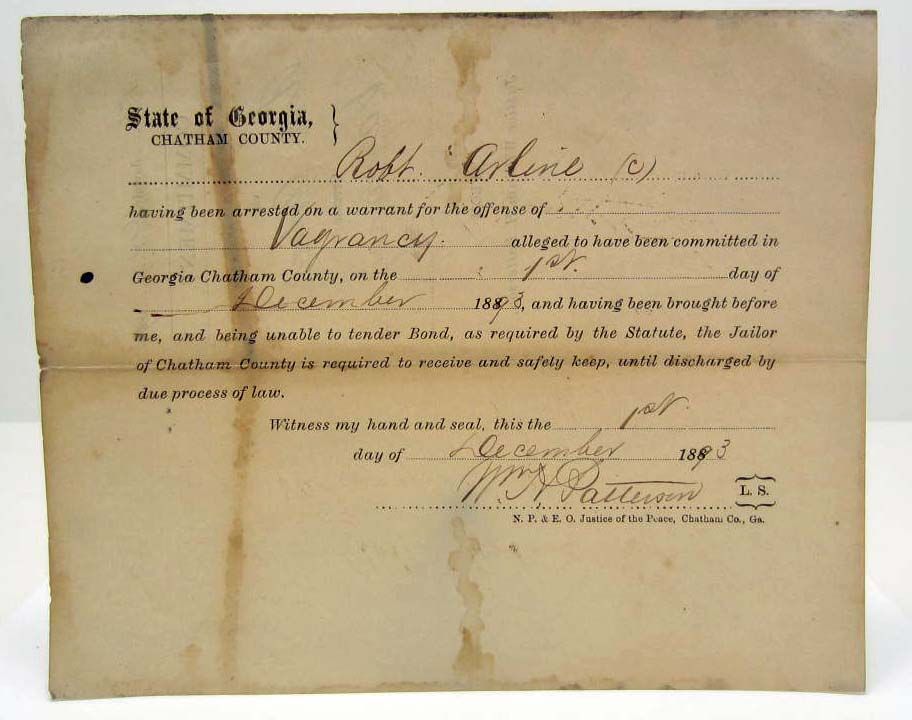 State of Georgia,
CHATHAM COUNTY.
Robt. Arline (c)
having been arrested on a warrant for the offense of
Vagrancy. alleged to have been committed in
Georgia Chatham County, on the 1st. day of
December 1893, and having been brought before
me, and being unable to tender Bond, as required by the Statute, the Jailor
of Chatham County is required to receive and safely keep, until discharged by
due process of law.
Witness my hand and seal, this the 1st.
day of December 1893
Wm. H. Patterson L. S.
N. P. & E. O. Justice of the Peace, Chatham Co., Ga.